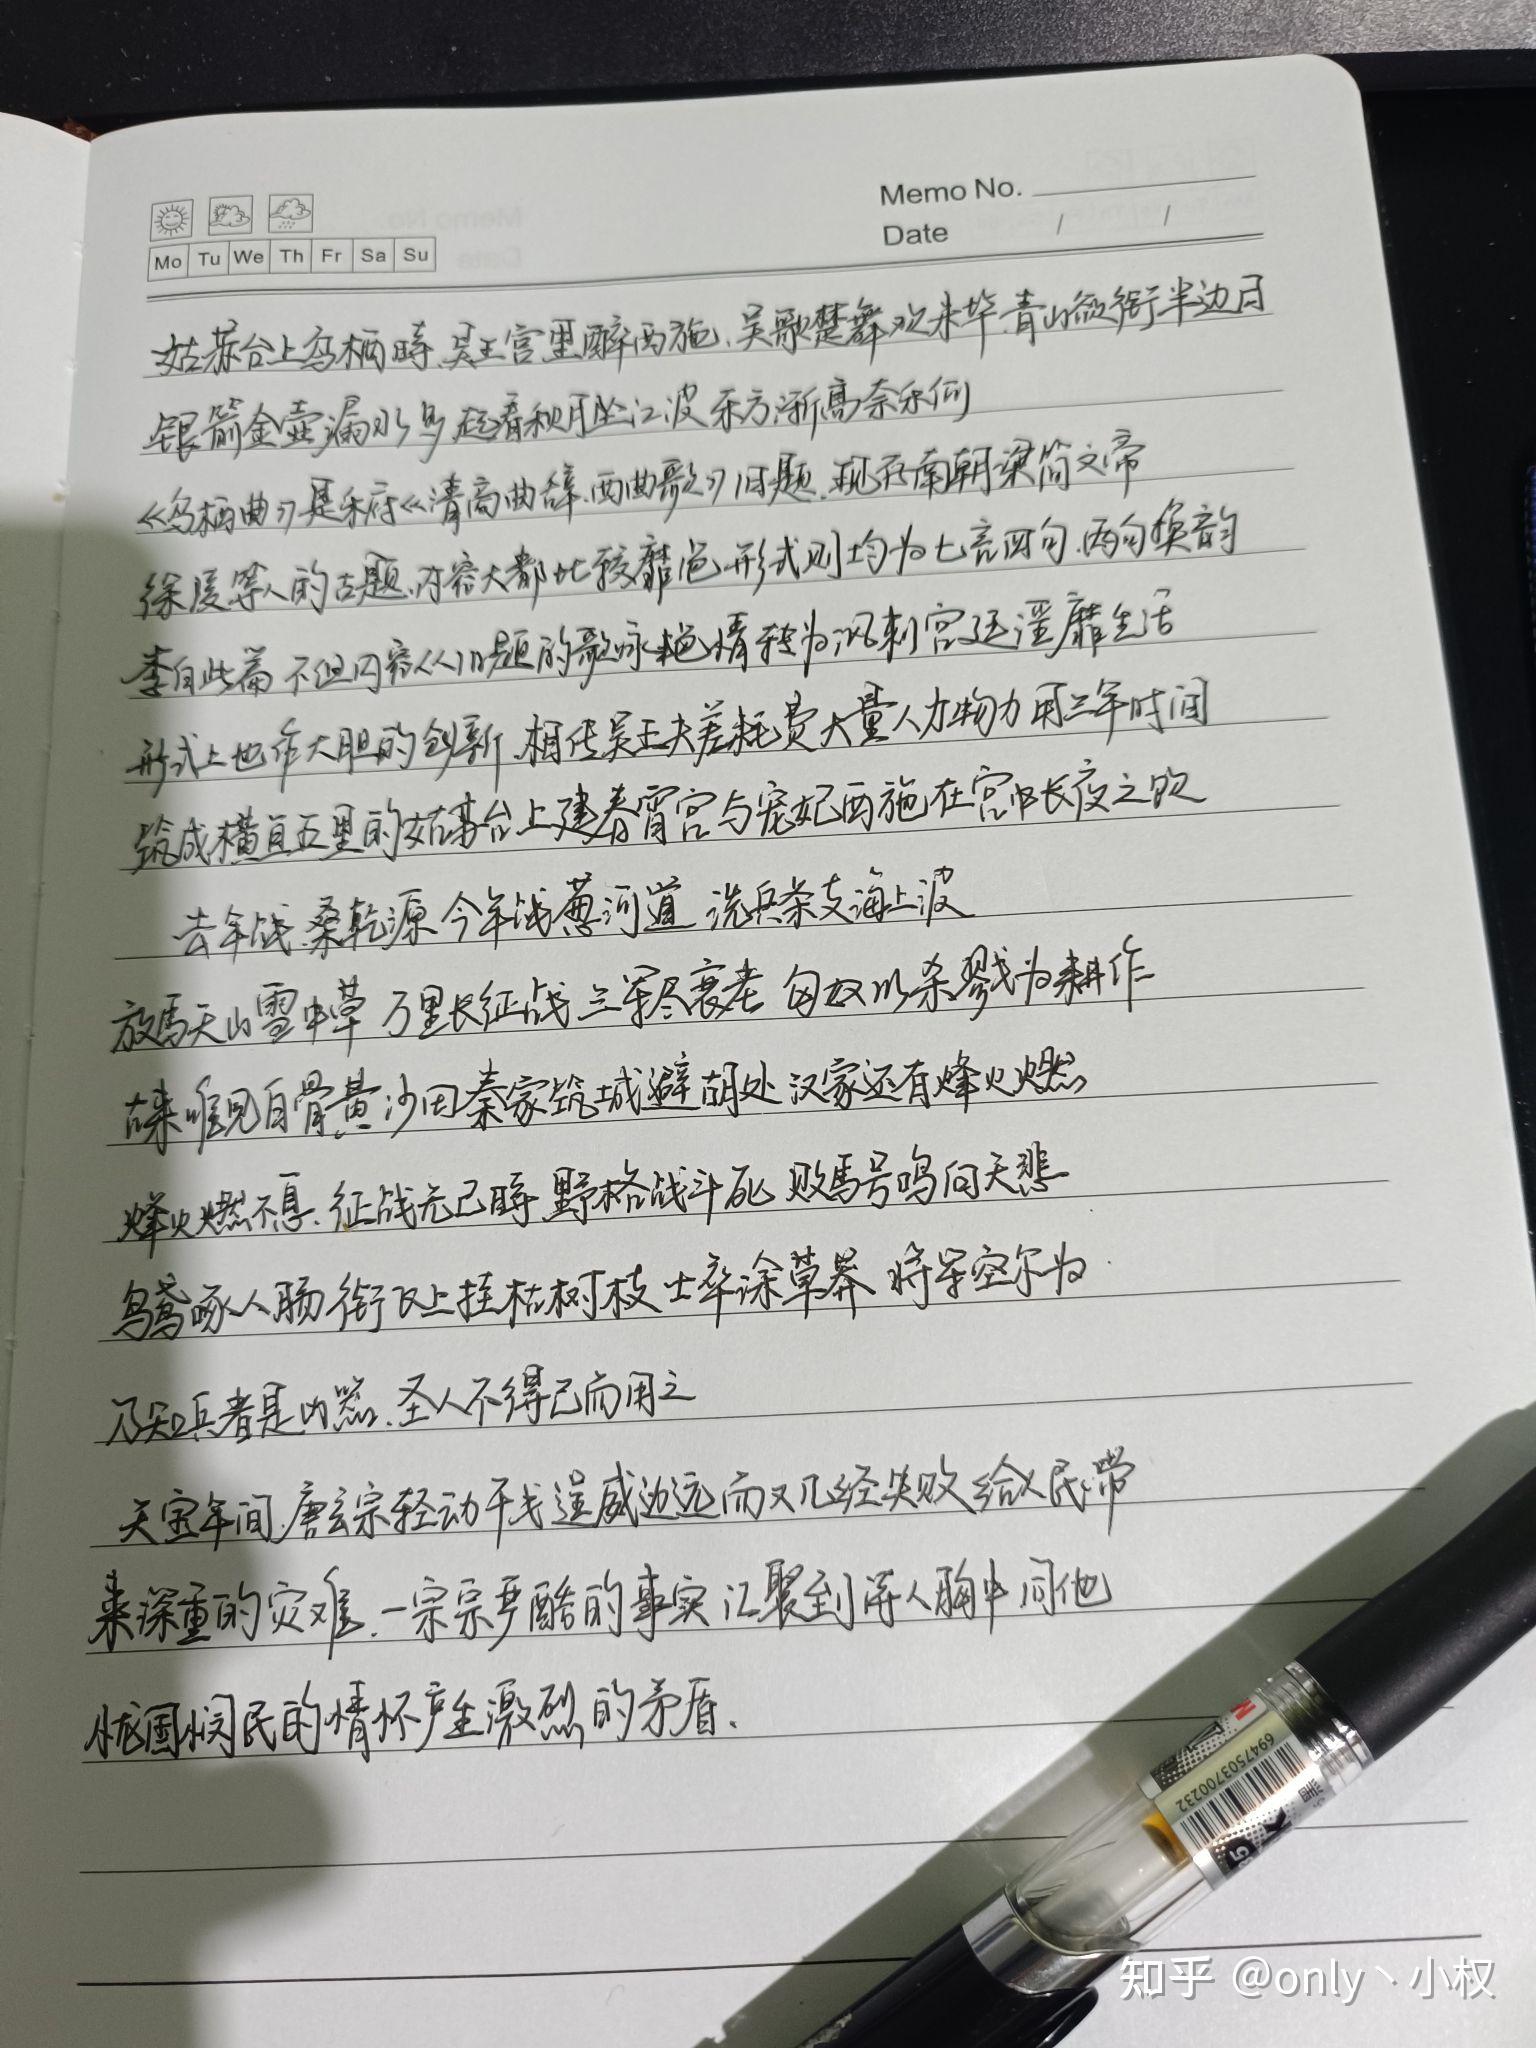 Memo No.
Date / /
Mo Tu We Th Fr Sa Su
姑苏台上乌栖時、吴王宫里醉西施、吴歌楚舞欢未毕、青山欲衔半边日
银箭金壶漏水多 起看秋月坠江波 东方渐高奈乐何
《乌栖曲》是乐府《清商曲辞、西曲歌》旧题、现存南朝梁简文帝
徐陵等人的古题、内容大都比较靡艳 形式则均为七言四句、两句换韵
李白此篇 不但内容从旧题的歌咏艳情转为讽刺宫廷淫靡生活
形式上也作大胆的创新、相传吴王夫差耗费大量人力物力用三年时间
筑成横亘五里的姑苏台上建春宵宫与宠妃西施在宫中长夜之饮
去年战、桑乾源 今年战葱河道 洗兵条支海上波
放馬天山雪中草 万里长征战 三军尽衰老 匈奴以杀戮为耕作
古来唯见白骨黄沙田 秦家筑城避胡处 汉家还有烽火燃
烽火燃不息、征战无已時 野格战斗死 败馬号鸣向天悲
乌鸢啄人肠 衔飞上挂枯树枝 士卒涂草莽 将军空尔为
乃知兵者是凶器、圣人不得已而用之
天宝年间、唐玄宗轻动干戈 逞威边远 而又几经失败 给人民带
来深重的灾难、一宗宗严酷的事实 汇聚到诗人胸中 同他
忧国悯民的情怀产生激烈的矛盾、
6947503700232
知乎 @only丶小权